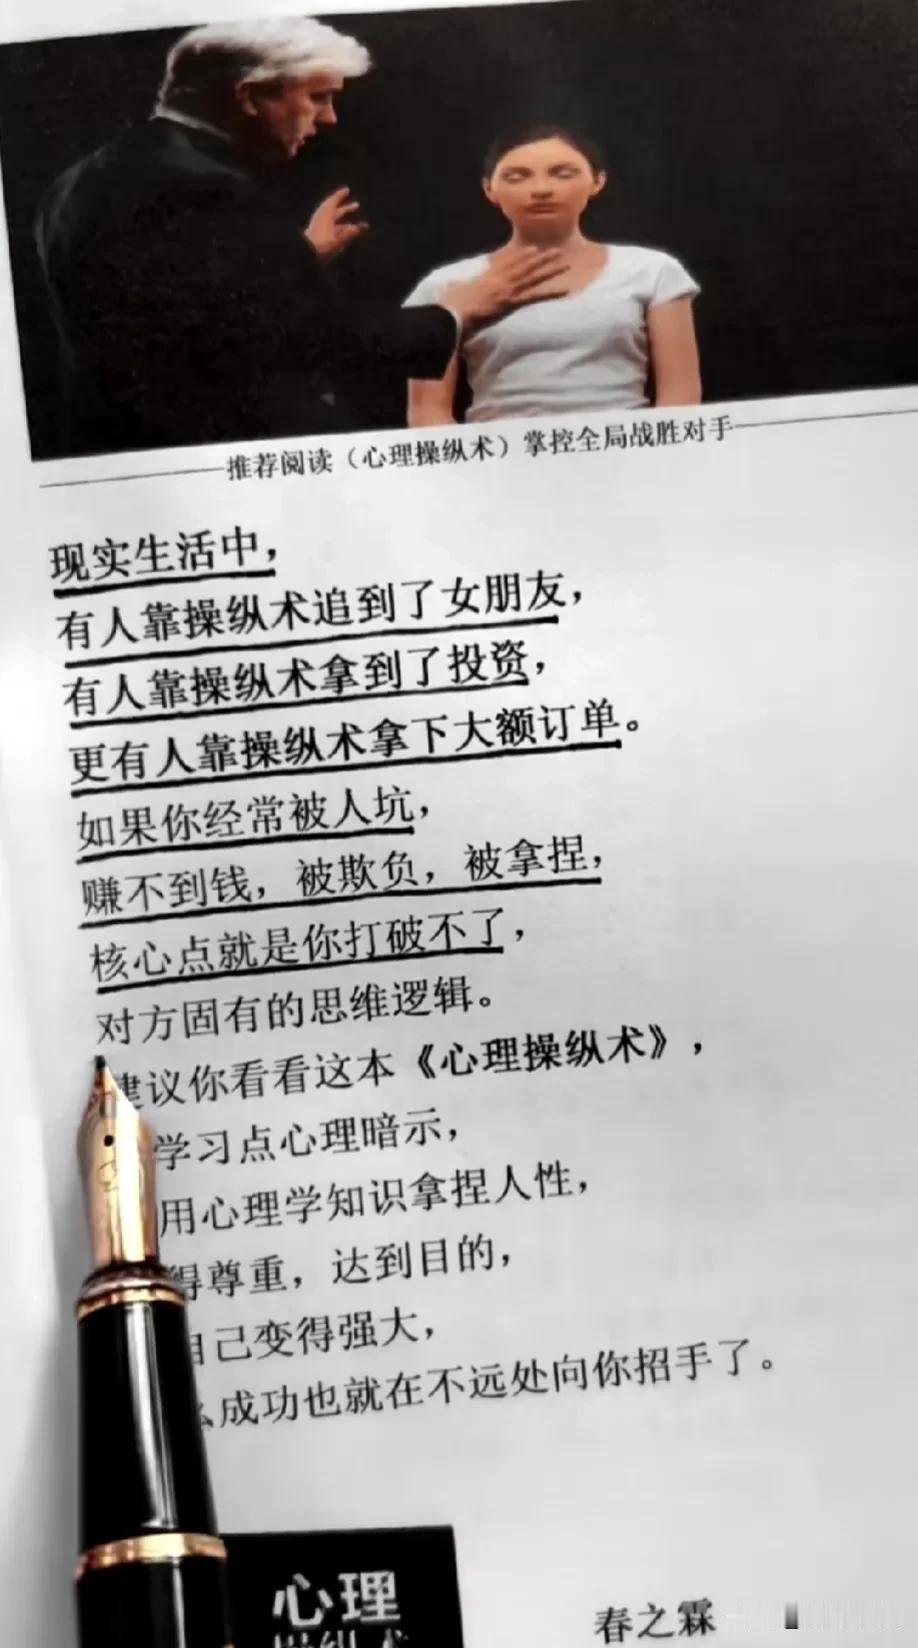 推荐阅读（心理操纵术）掌控全局战胜对手
现实生活中，
有人靠操纵术追到了女朋友，
有人靠操纵术拿到了投资，
更有人靠操纵术拿下大额订单。
如果你经常被人坑，
赚不到钱，被欺负，被拿捏，
核心点就是你打破不了，
对方固有的思维逻辑。
建议你看看这本《心理操纵术》，
学习点心理暗示，
用心理学知识拿捏人性，
得尊重，达到目的，
自己变得强大，
么成功也就在不远处向你招手了。
心理
操纵术
春之霖